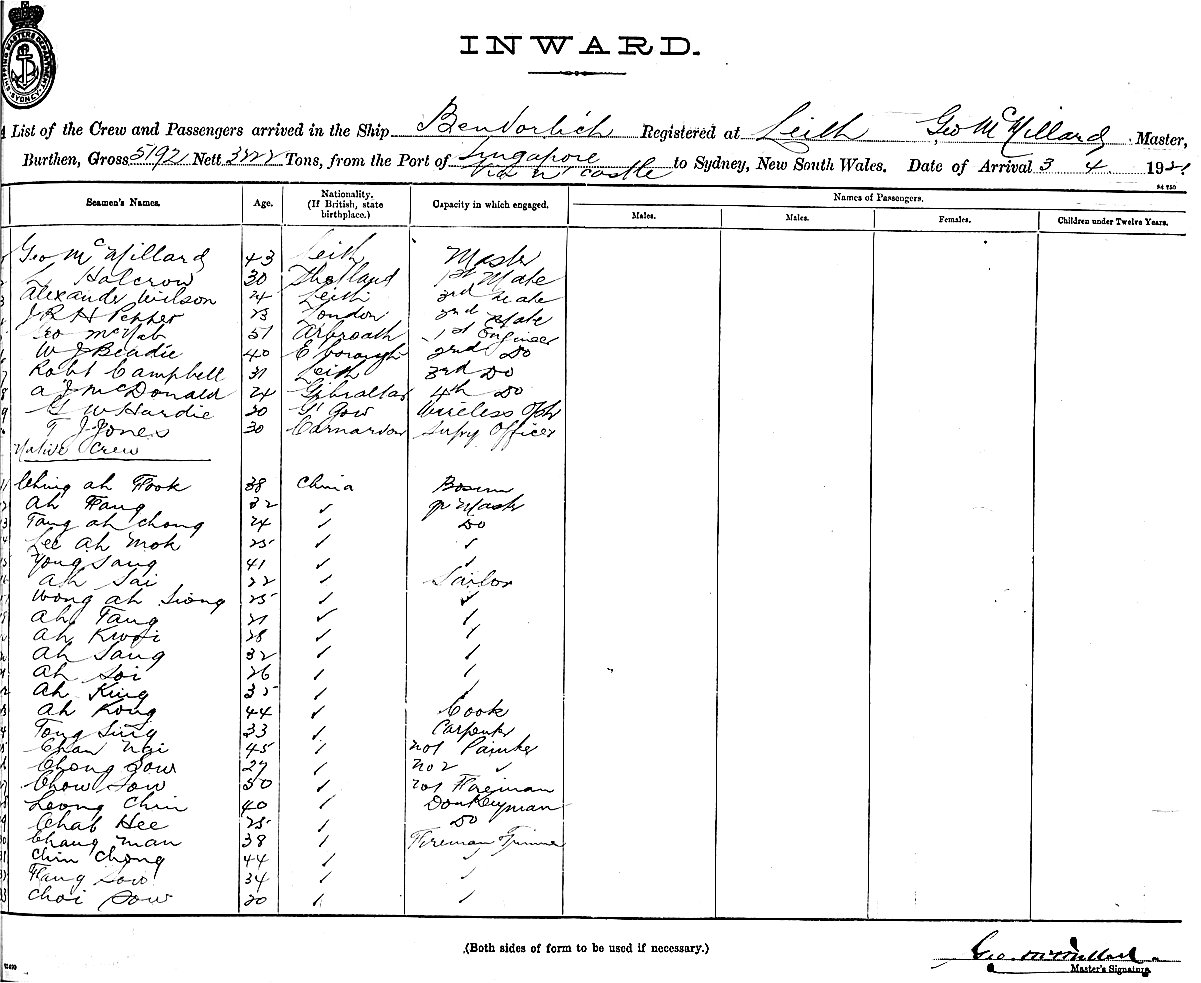 SHIPPING MASTERS DEPARTMENT SYDNEY
INWARD.
List of the Crew and Passengers arrived in the Ship Bendorlich Registered at Leith Geo McMillard Master,
Burthen, Gross 5192 Nett 3222 Tons, from the Port of Singapore to Sydney, New South Wales. Date of Arrival 3 4 192
via N'castle
Seamen's Names. Age. Nationality. (If British, state birthplace.) Capacity in which engaged. Names of Passengers.
Males. Males. Females. Children under Twelve Years.
Geo McMillard 43 Leith Master
Halcrow 30 Shetland 1st Mate
Alexander Wilson 24 Leith 3rd Mate
J R H Pepper 23 London 2nd Mate
Geo McNab 51 Arbroath 1st Engineer
W J Beadie 40 2nd Do
Robt Campbell 31 Leith 3rd Do
A J McDonald 24 Gibraltar 4th Do
G W Hardie 20 G'Gow Wireless Optr
T J Jones 30 Carnarvon Supy Officer
Native Crew
11 Ching ah Fook 38 China Bosun
Ah Fang 32 ✓ qr Mastr
Tang ah Chong 24 ✓ Do
Lee Ah Mok 25 ✓ ✓
Yong Sang 41 ✓ ✓
Ah Sai 22 ✓ Sailor
Wong ah Siong 25 ✓ ✓
Ah Tang 21 ✓ ✓
Ah Kwoi 28 ✓ ✓
Ah Sang 32 ✓ ✓
Ah Soi 26 ✓ ✓
Ah King 35 ✓ ✓
Ah Kong 44 ✓ Cook
Tong Sing 33 ✓ Carpenter
Chan Ngi 45 ✓ No1 Painter
Chong Sow 27 ✓ No2 ✓
Chow Sow 50 ✓ No1 Fireman
Leong Chin 40 ✓ Donkeyman
Chab Hee 25 ✓ Do
Chang Man 38 ✓ Fireman Trimmer
Chin Chong 44 ✓ ✓
Fang Sow 34 ✓ ✓
Choi Sow 20 ✓ ✓
(Both sides of form to be used if necessary.)
Geo. McMillard
Master's Signature.